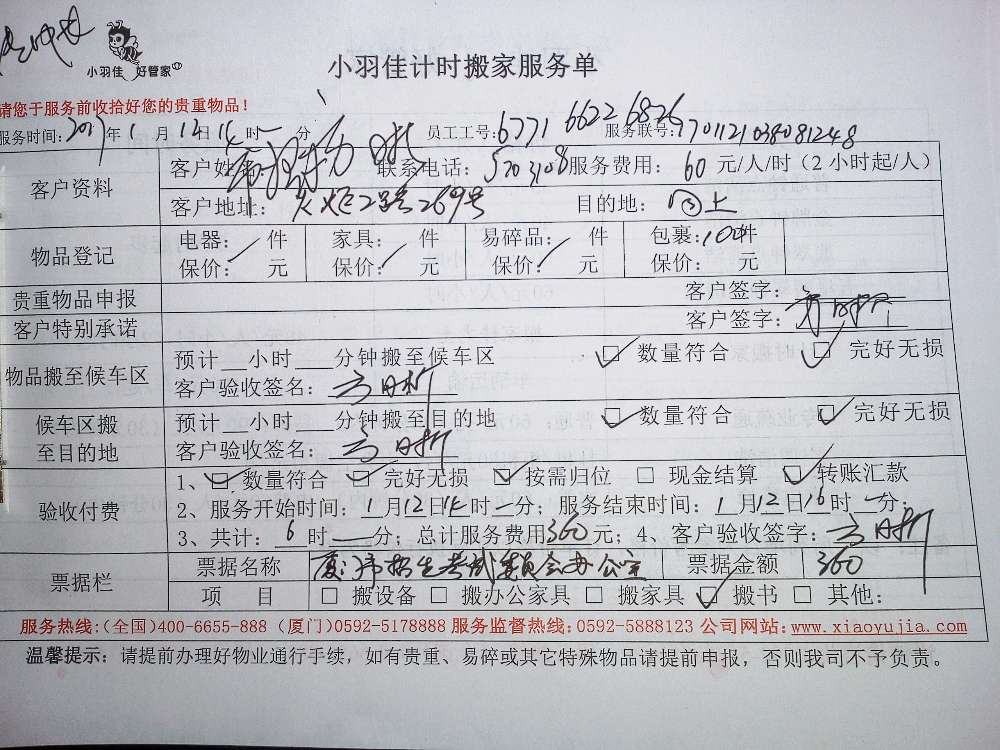 小羽佳 好管家
小羽佳计时搬家服务单
请您于服务前收拾好您的贵重物品！
服务时间：2017年1月12日14时一分 员工工号：6771 6622 6826 服务联号：1701121038081248
客户资料 客户姓名： 联系电话：5703108 服务费用：60元/人/时（2小时起/人）
客户地址：火炬2路269号 目的地：同上
物品登记 电器：／件 家具：／件 易碎品：／件 包裹：10件
保价：／元 保价：／元 保价：／元 保价：元
贵重物品申报 客户签字：
客户特别承诺 客户签字：
物品搬至候车区 预计__小时___分钟搬至候车区 ☑ 数量符合 ☑ 完好无损
客户验收签名：
候车区搬至目的地 预计__小时___分钟搬至目的地 ☑ 数量符合 ☑ 完好无损
客户验收签名：
验收付费 1、☑数量符合 ☑完好无损 ☑按需归位 □ 现金结算 ☑转账汇款
2、服务开始时间：1月12日14时一分；服务结束时间：1月12日16时一分；
3、共计：6时一分；总计服务费用360元；4、客户验收签字：
票据栏 票据名称 厦门市招生考试委员会办公室 票据金额 360
项 目 □ 搬设备 □ 搬办公家具 □ 搬家具 ☑ 搬书 □ 其他：
服务热线：(全国)400-6655-888 (厦门)0592-5178888 服务监督热线：0592-5888123 公司网站：www.xiaoyujia.com
温馨提示：请提前办理好物业通行手续，如有贵重、易碎或其它特殊物品请提前申报，否则我司不予负责。